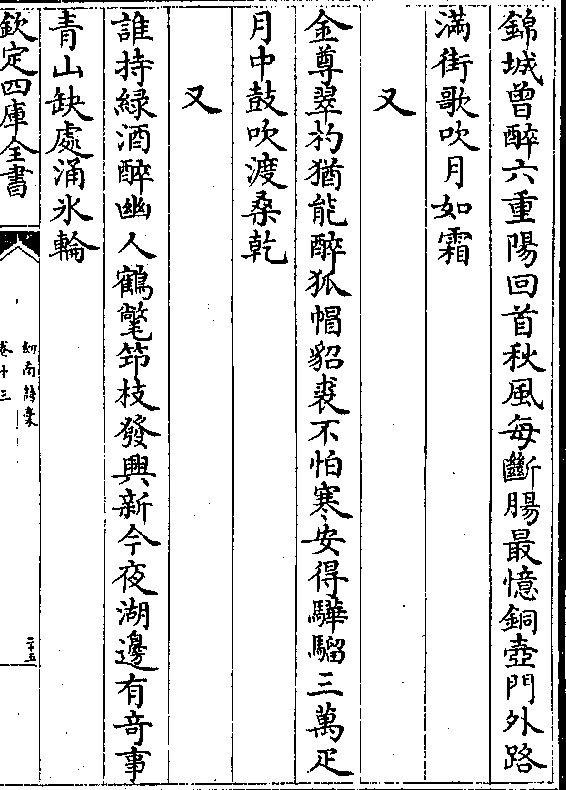 錦城曾醉六重陽回首秋風每斷腸最憶銅壺門外路
滿街歌吹月如霜
又
金尊翠杓猶能醉狐帽貂裘不怕寒安得驊騮三萬疋
月中鼓吹渡桑乾
又
誰持緑酒醉幽人鶴氅筇枝發興新今夜湖邊有竒事
青山缺處涌氷輪
欽定四庫全書
劒南詩稾
卷十三
二十五